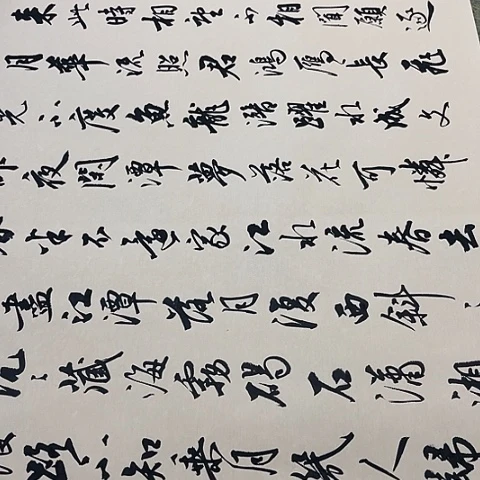 来此時相望不相聞願逐
月華流照君鴻雁長飛
光不度魚龍潛躍水成文
昨夜閒潭夢落花可憐
春半不還家江水流春去
盡江潭落月復西斜
沉々藏海霧碣石瀟湘
限路不知乘月幾人歸